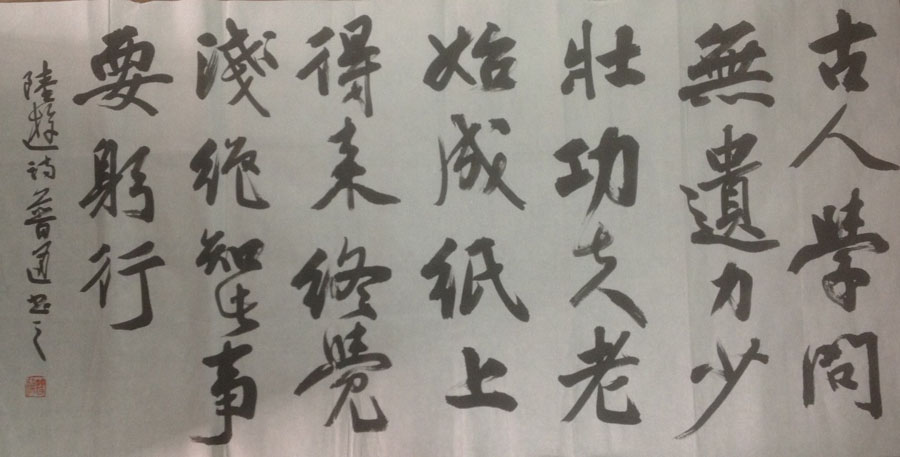 古人學問
無遺力少
壮功夫老
始成紙上
得来終覺
淺絕知此事
要躬行
陸遊诗普書之